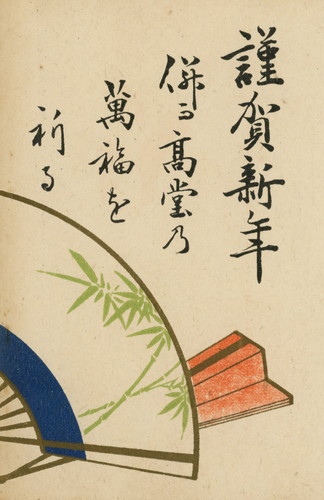 謹賀新年
併る高堂乃
萬福を
祈る